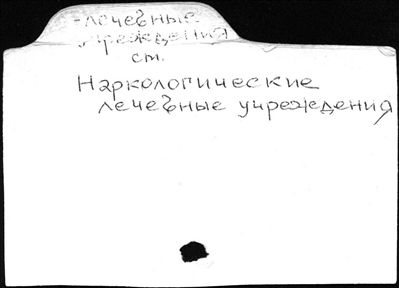 -лечебные
учреждения
см.
Наркологические
лечебные учреждения